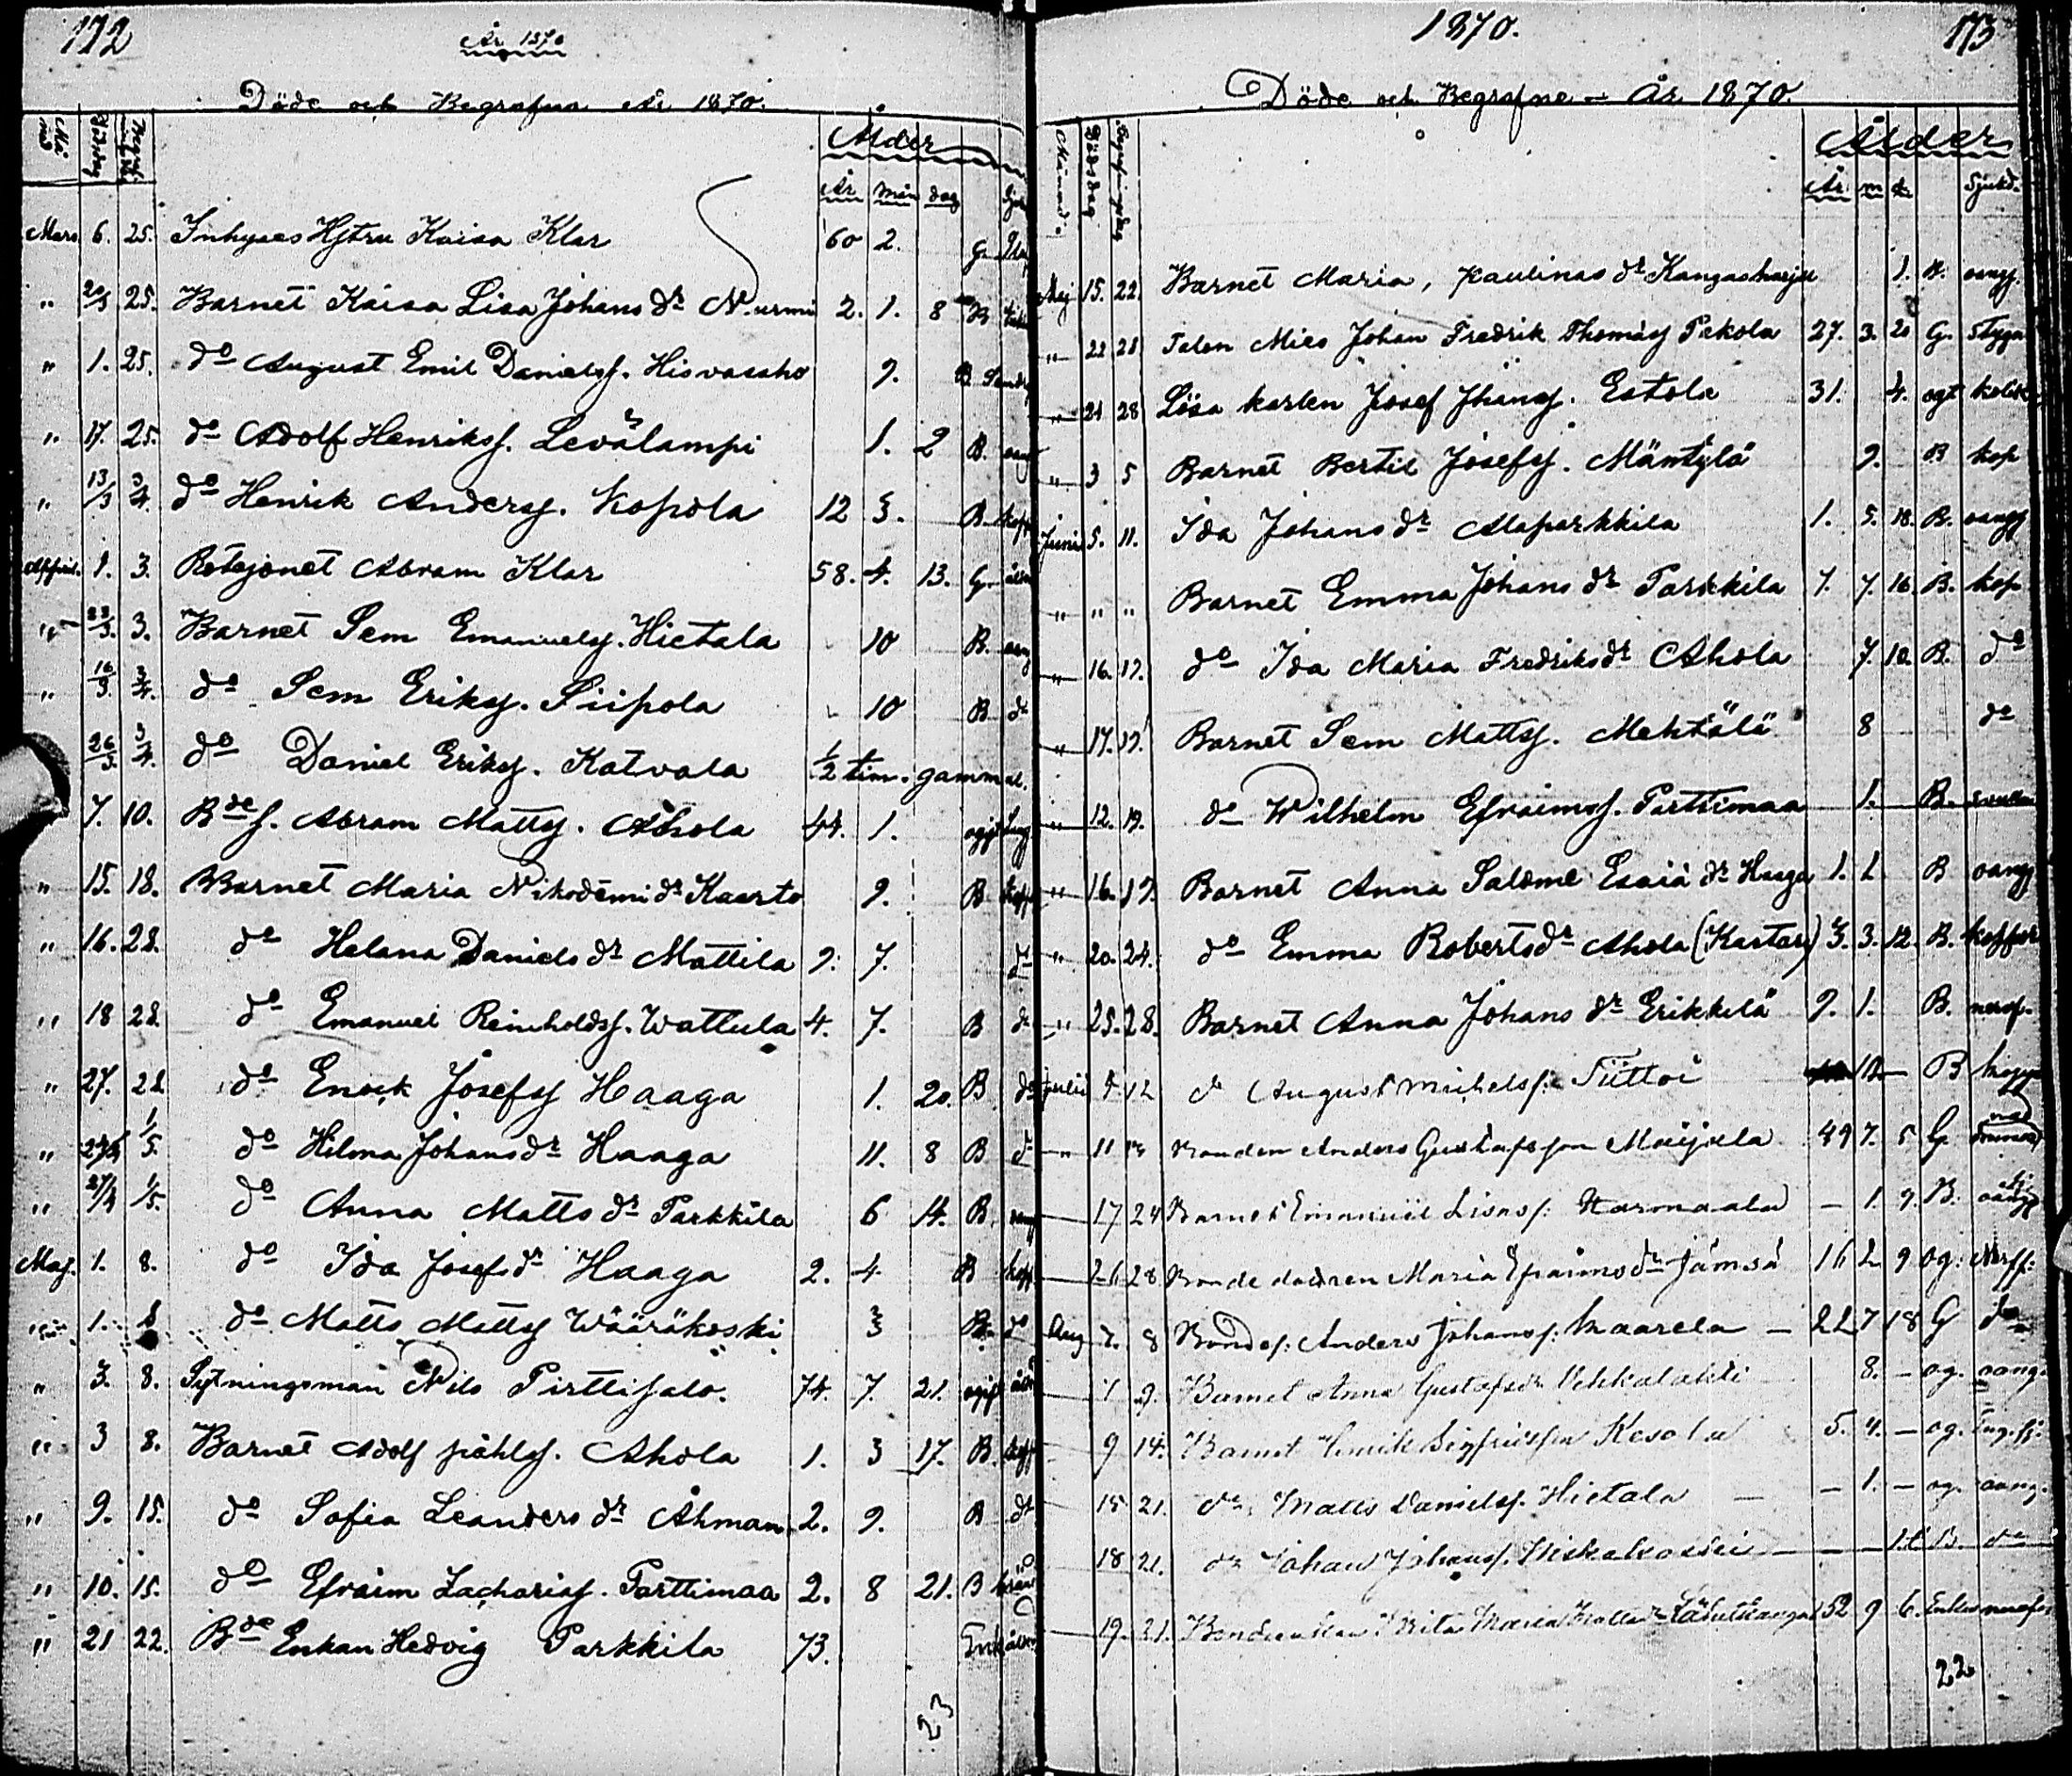 172
År 1870
Döde och Begrafna År 1870.
Ålder
År mån dag
Mars 6. 25. Inhyses Hstru Kaisa Klar 60 2. G.
" 20/3 25. Barnet Kaisa Lisa Johans dr Nurmi 2. 1. 8 B
" 1. 25. do August Emil Danielss. Hisvasaho 9. B
" 17. 25. do Adolf Henrikss. Levälampi 1. 2 B.
" 13/3 3/4. do Henrik Anderss. Kopola 12 3. B. kopp
April. 1. 3. Rotejonet Abram Klar 58. 4. 13. G.
" 23/3. 3. Barnet Sem Emanuelss. Hietala 10 B.
" 16/3 3/4. do Sem Erikss. Siipola 10 B do
26/3. 3/4. do Daniel Erikss. Katvala 1/2 tim. gammal.
7. 10. Bde s. Abram Matts. Ahola 44. 1. ogift
" 15. 18. Barnet Maria Nikodemi dr Kaarto 9. B kopp
" 16. 28. do Helana Daniels dr Mattila 9. 7. do
" 18 28. do Emanuel Reinholdss. Wattula 4. 7. B do
" 27. 28 do Enock Josefss Haaga 1. 20. B do
" 27/4 1/5. do Hilma Johans dr Haaga 11. 8 B do
" 27/4 1/5. do Anna Matts dr Parkkila 6 14. B.
Maj. 1. 8. do Ida Josefs dr Haaga 2. 4. B kopp
" 1. 8 do Matts Mattss Wääräkoski 3 B. do
" 3. 8. Sytningsman Nils Pirttisalo. 74. 7. 21. ogift
" 3 8. Barnet Adolf påhlss. Ahola 1. 3 17. B. kopp
" 9. 15. do Sofia Leanders dr Åhman 2. 9. B do
" 10. 15. do Efraim Zachariass. Parttimaa 2. 8 21. B
" 21 22. Bde Enkan Hedvig Parkkila 73. Enk
23
1870. 173
Döde och Begrafne – År 1870.
Månad Dödsdag Begrafningsdag
Ålder
År m d. Sjukd.
Maj 15. 22. Barnet Maria, Paulinas dr Kangasharju 1. B. oangf.
" 22 28 Talon Mies Johan Fredrik Thomass Pekola 27. 3. 20 G. Stygn
" 21 28 Lösa karlen Josef Jhanss. Estola 31. 4. ogt kolik
" 3 5 Barnet Bertil Josefss. Mäntylä 9. B kop
Juni 5. 11. Ida Johans dr Alaparkkila 1. 5. 18. B. oangf
" " " Barnet Emma Johans dr Parkkila 7. 7. 16. B. kop
" 16. 19. do Ida Maria Fredriks dr Ahola 7. 10. B. do
" 17. 19. Barnet Sem Mattss. Mehtälä 8 do
" 12. 19. do Wilhelm Efraimss. Parttimaa 1. B.
" 16. 19. Barnet Anna Salome Esaiä dr Haaga 1. 1. B oangf
" 20. 24. do Emma Roberts dr Ahola (Kartas) 3. 3. 12. B. koppor
" 25. 28. Barnet Anna Johans dr Erikkilä 9. 1. B. nerf.
Julii 9. 12 do August Michelss. Tiittoi 10 B kopp
" 11 Bonden Anders Gustafsson Maijala 49 7. 5 G.
17 24 Barnet Emanuel Lisas s. Harmaala – 1. 9. B. oangf
26 28 Bonde dottren Maria Efraims dr Jämsä 16 2 9 og. Nerff:
Aug 7. 8 Bondes. Anders Johanss. Maarela – 22 7 18 G do
7 9. Barnet Anna Gustafs dr Vehkalahti 8. – og. oang.
9 14. Barnet Henrik Sigfridsson Kesola 5. 4. – og.
15 21. do Matts Danielss. Hietala – – 1. – og. oang.
18 21. do Johan Johanss. Niskakoski – – – B. do
19. 21. Bondeenkan Brita Maria Matts dr 52 9 6. Enka nerfe.
22.